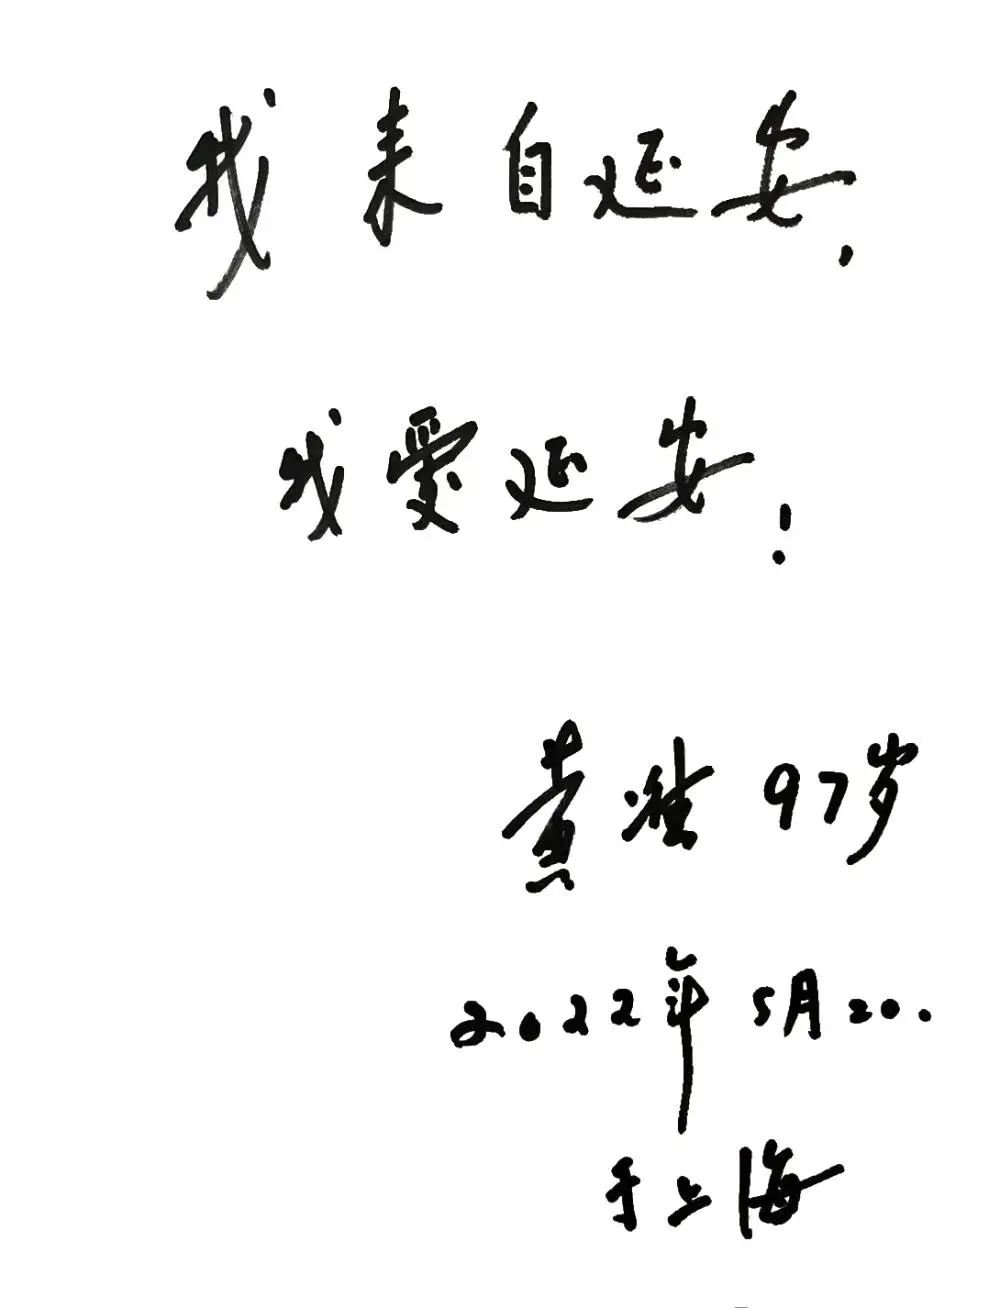 我来自延安，
我爱延安！
黄准 97岁
2022年5月20.
于上海